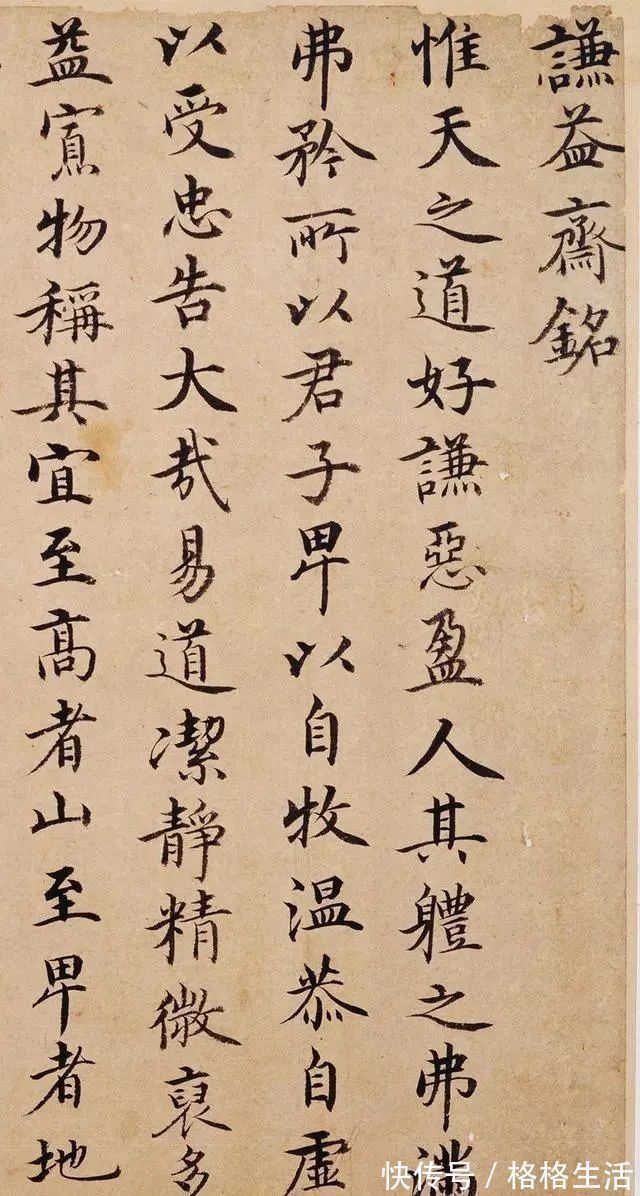 謙益齋銘
惟天之道好謙惡盈人其體之弗滿
弗矜所以君子卑以自牧温恭自虛
以受忠告大哉易道潔靜精微裒多
益寡物稱其宜至高者山至卑者地
快传号／格格生活